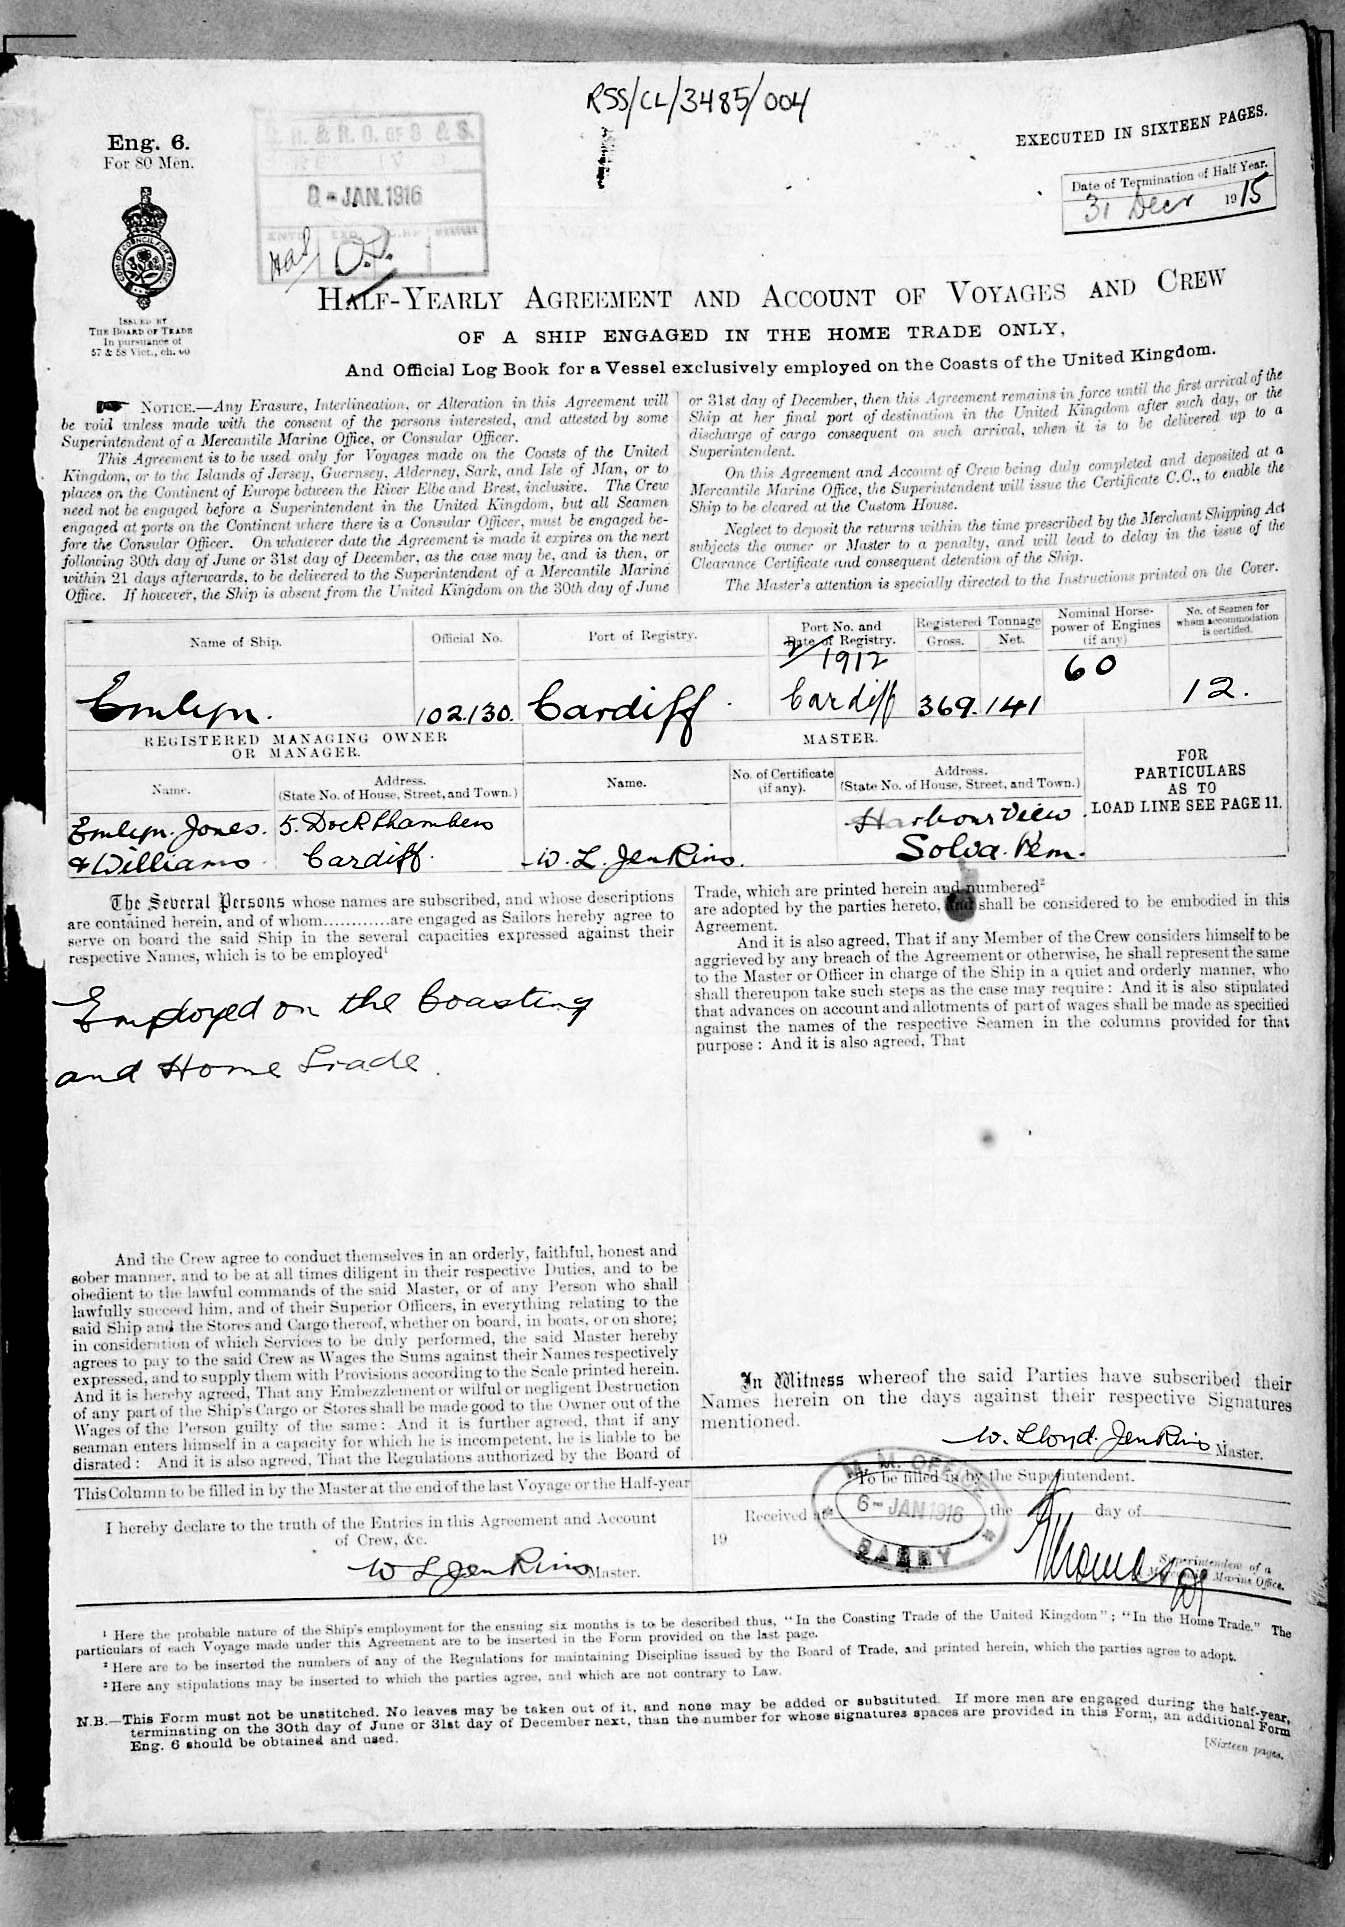 RSS/CL/3485/004
Eng. 6.
For 80 Men.
EXECUTED IN SIXTEEN PAGES.
Date of Termination of Half Year.
31 Decr 1915
8 - JAN. 1916
ISSUED BY
THE BOARD OF TRADE
In pursuance of
57 & 58 Vict., ch. 60
HALF-YEARLY AGREEMENT AND ACCOUNT OF VOYAGES AND CREW
OF A SHIP ENGAGED IN THE HOME TRADE ONLY,
And Official Log Book for a Vessel exclusively employed on the Coasts of the United Kingdom.
NOTICE.—Any Erasure, Interlineation, or Alteration in this Agreement will
be void unless made with the consent of the persons interested, and attested by some
Superintendent of a Mercantile Marine Office, or Consular Officer.
This Agreement is to be used only for Voyages made on the Coasts of the United
Kingdom, or to the Islands of Jersey, Guernsey, Alderney, Sark, and Isle of Man, or to
places on the Continent of Europe between the River Elbe and Brest, inclusive. The Crew
need not be engaged before a Superintendent in the United Kingdom, but all Seamen
engaged at ports on the Continent where there is a Consular Officer, must be engaged be-
fore the Consular Officer. On whatever date the Agreement is made it expires on the next
following 30th day of June or 31st day of December, as the case may be, and is then, or
within 21 days afterwards, to be delivered to the Superintendent of a Mercantile Marine
Office. If however, the Ship is absent from the United Kingdom on the 30th day of June
or 31st day of December, then this Agreement remains in force until the first arrival of the
Ship at her final port of destination in the United Kingdom after such day, or the
discharge of cargo consequent on such arrival, when it is to be delivered up to a
Superintendent.
On this Agreement and Account of Crew being duly completed and deposited at a
Mercantile Marine Office, the Superintendent will issue the Certificate C.C., to enable the
Ship to be cleared at the Custom House.
Neglect to deposit the returns within the time prescribed by the Merchant Shipping Act
subjects the owner or Master to a penalty, and will lead to delay in the issue of the
Clearance Certificate and consequent detention of the Ship.
The Master's attention is specially directed to the Instructions printed on the Cover.
Name of Ship.
Official No.
Port of Registry.
Port No. and
Date of Registry.
Registered Tonnage
Gross. Net.
Nominal Horse-
power of Engines
(if any)
No. of Seamen for
whom accommodation
is certified.
Emlyn.
102.130.
Cardiff.
2/1912
Cardiff
369. 141
60
12.
REGISTERED MANAGING OWNER
OR MANAGER.
MASTER.
FOR
PARTICULARS
AS TO
LOAD LINE SEE PAGE 11.
Name.
Address.
(State No. of House, Street, and Town.)
Name.
No. of Certificate
(if any).
Address.
(State No. of House, Street, and Town.)
Emlyn. Jones. 5. Dock Chambers
& Williams Cardiff.
W. L. Jenkins.
Harbour View
Solva. Pem.
The Several Persons whose names are subscribed, and whose descriptions
are contained herein, and of whom............are engaged as Sailors hereby agree to
serve on board the said Ship in the several capacities expressed against their
respective Names, which is to be employed¹
Employed on the Coasting
and Home Trade.
And the Crew agree to conduct themselves in an orderly, faithful, honest and
sober manner, and to be at all times diligent in their respective Duties, and to be
obedient to the lawful commands of the said Master, or of any Person who shall
lawfully succeed him, and of their Superior Officers, in everything relating to the
said Ship and the Stores and Cargo thereof, whether on board, in boats, or on shore;
in consideration of which Services to be duly performed, the said Master hereby
agrees to pay to the said Crew as Wages the Sums against their Names respectively
expressed, and to supply them with Provisions according to the Scale printed herein.
And it is hereby agreed, That any Embezzlement or wilful or negligent Destruction
of any part of the Ship's Cargo or Stores shall be made good to the Owner out of the
Wages of the Person guilty of the same: And it is further agreed, that if any
seaman enters himself in a capacity for which he is incompetent, he is liable to be
disrated: And it is also agreed, That the Regulations authorized by the Board of
Trade, which are printed herein and numbered²
are adopted by the parties hereto, and shall be considered to be embodied in this
Agreement.
And it is also agreed, That if any Member of the Crew considers himself to be
aggrieved by any breach of the Agreement or otherwise, he shall represent the same
to the Master or Officer in charge of the Ship in a quiet and orderly manner, who
shall thereupon take such steps as the case may require: And it is also stipulated
that advances on account and allotments of part of wages shall be made as specified
against the names of the respective Seamen in the columns provided for that
purpose: And it is also agreed, That
In Witness whereof the said Parties have subscribed their
Names herein on the days against their respective Signatures
mentioned.
W. Lloyd. Jenkins Master.
This Column to be filled in by the Master at the end of the last Voyage or the Half-year
I hereby declare to the truth of the Entries in this Agreement and Account
of Crew, &c.
W L Jenkins Master.
To be filled in by the Superintendent.
Received at the day of
19
M. M. OFFICE
6 - JAN 1916
BARRY
Superintendent of a
Marine Office.
¹ Here the probable nature of the Ship's employment for the ensuing six months is to be described thus, "In the Coasting Trade of the United Kingdom"; "In the Home Trade." The
particulars of each Voyage made under this Agreement are to be inserted in the Form provided on the last page.
² Here are to be inserted the numbers of any of the Regulations for maintaining Discipline issued by the Board of Trade, and printed herein, which the parties agree to adopt.
³ Here any stipulations may be inserted to which the parties agree, and which are not contrary to Law.
N.B.—This Form must not be unstitched. No leaves may be taken out of it, and none may be added or substituted. If more men are engaged during the half-year,
terminating on the 30th day of June or 31st day of December next, than the number for whose signatures spaces are provided in this Form, an additional Form
Eng. 6 should be obtained and used.
[Sixteen pages.